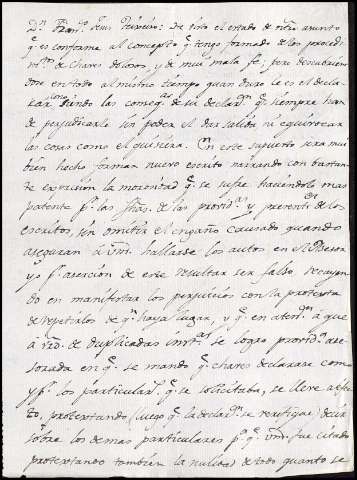 Dn. Franco. Luis Teixeiro: He visto el estado de nro. asunto
qe. es conforme al concepto qe. tengo formado de los procedi
mtos. de Chares dolosos y de muy mala fe; pero descubrien
dose en todo al mismo tiempo quan duro le es el decla
rar viendo las conseqas. de su declaron. qe. siempre han
de perjudicarle sin poder el dar salidas ni equivocar
las cosas como el quisiera. En este supuesto sera muy
bien hecho formar nuevo escrito narrando con bastan
te expresion la morosidad qe. se sufre haciendola mas
patente pr. las fhas. de las providas. y presentn. de los
escritos, sin omitir el engaño causado quando
aseguran à Vm. hallarse los autos en el Asesor
y pr. asercion de este resultar ser falso recayen
do en manifestar los perjuicios con la protexta
de repetirlos de qn. haya lugar, y qe. en atenon. à que
à vtd. de duplicadas instas. se logro provida. ase
sorada en qe. se mandò qe. Chares declarase como
y pr. los particulars. qe. se solicitaba, se lleve a efec
to, protextando (luego qe. la declaon. se verifique) decir
sobre los demas particulares pa. qe. Vm. fue citado
protextando tambien la nulidad de todo quanto se